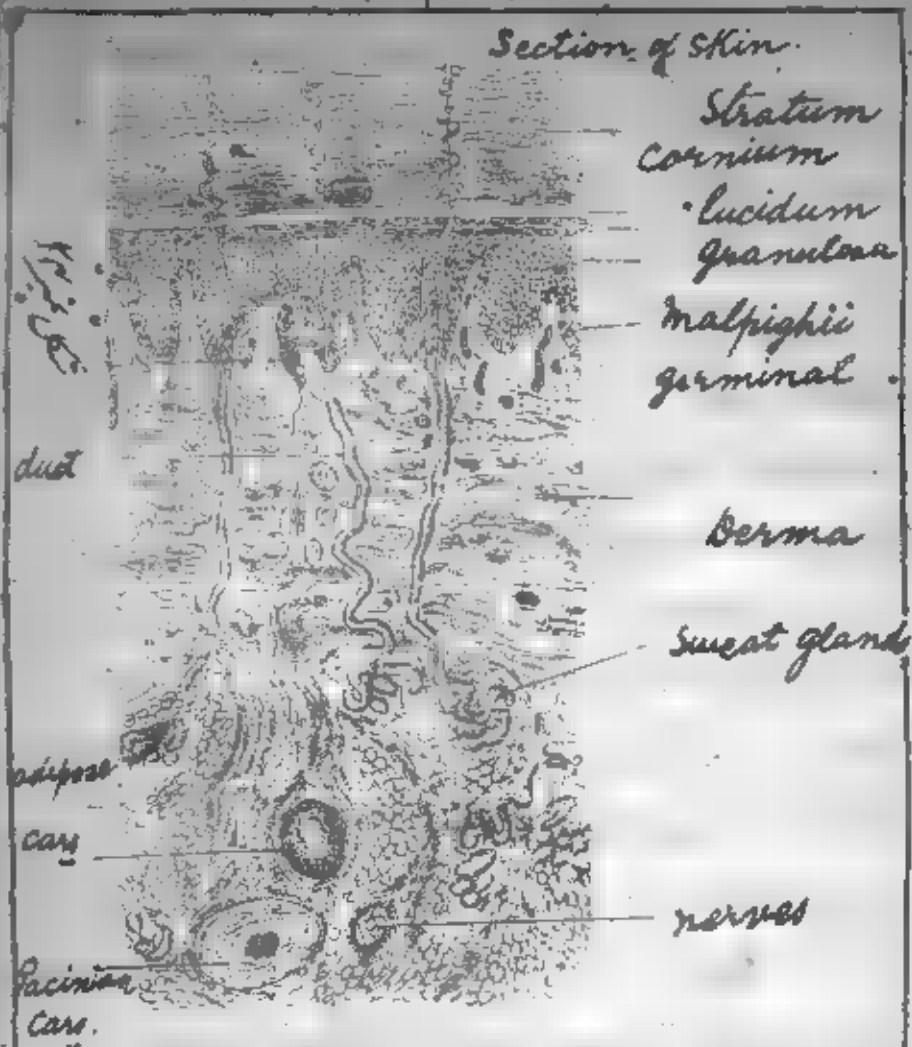 Section of skin.
Stratum
Cornium
lucidum
granulosa
Malpighii
germinal
duct
Derma
Sweat glands
adipose
nerves
Pacinian
Cars.